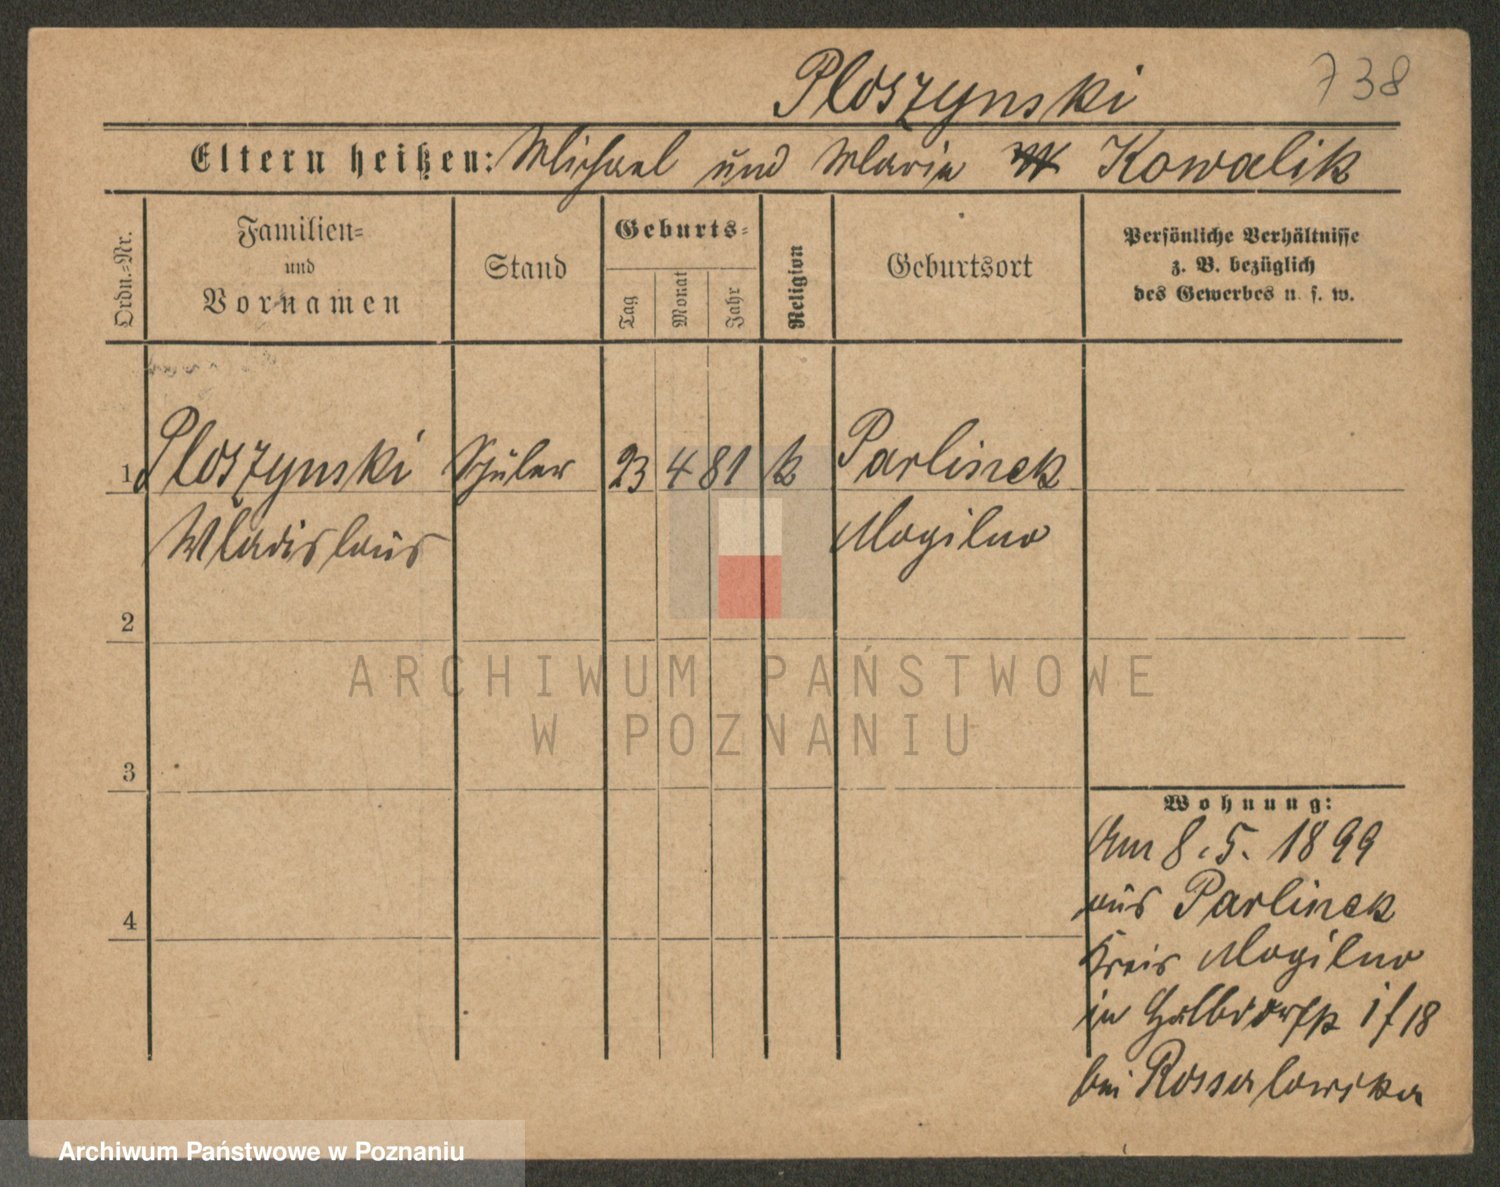 Ploszynski 738
Eltern heißen: Michael und Maria Kowalik
Ordn.-Nr.
Familien-
und
Vornamen
Stand
Geburts-
Tag
Monat
Jahr
Religion
Geburtsort
Persönliche Verhältnisse
z. B. bezüglich
des Gewerbes u. s. w.
1 Ploszynski Schüler 23 4 81 k Parlinek
Wladislaus Mogilno
2
ARCHIWUM PAŃSTWOWE
W POZNANIU
3
Wohnung:
Am 8.5.1899
aus Parlinek
4
Kreis Mogilno
in Halbdorfstr 18
bei Rossalowska
Archiwum Państwowe w Poznaniu